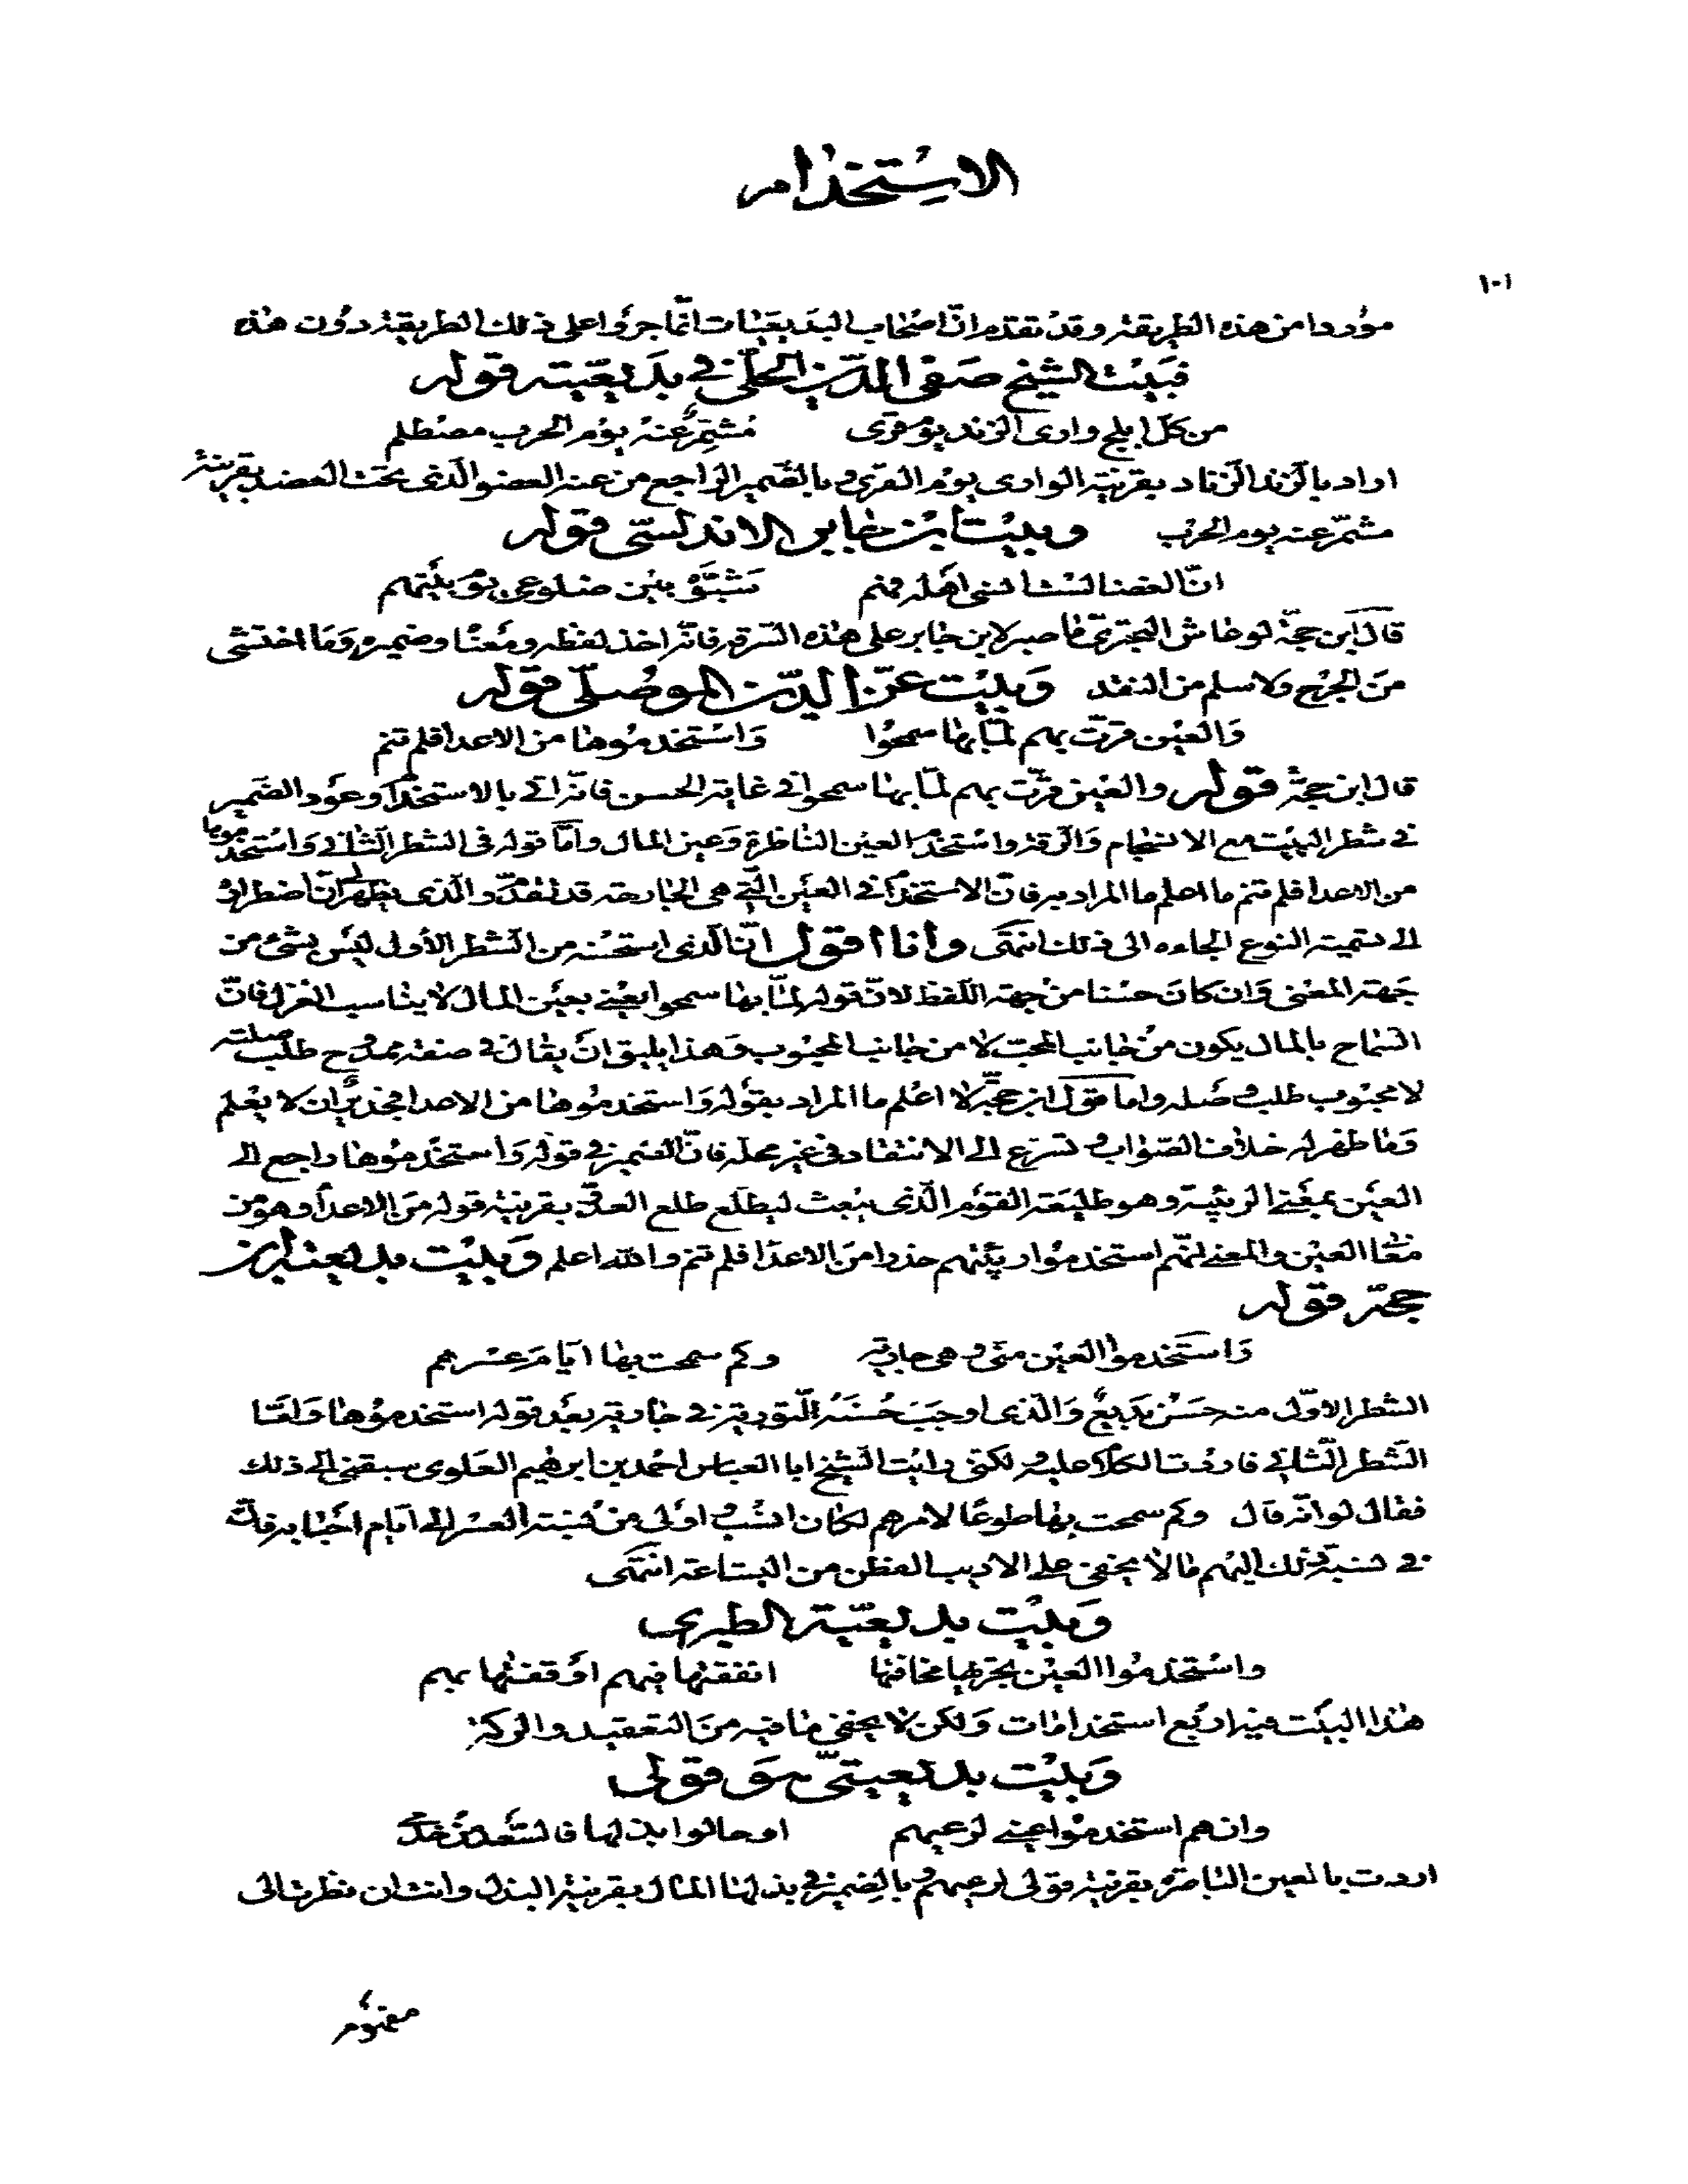 الاستخدام
١٠١
موردا من هذه الطريقة وقد تقدم انّ اصحاب البديعيات انّما جروا على ذلك الطريقة دون هذه
فبيت الشيخ صفى الدين الحلى في بديعيته قوله
من كل ابلج وارى الزند يوم قرى مشمّر عنه يوم الحرب مصطلم
اراد بالزند الزناد بقرينة الوارى يوم القرى وبالضمير الراجع من عنه العضو الّذى تحت العضد بقرينة
مشمّر عنه يوم الحرب وبيت ابن جابر الاندلسى قوله
انّ الغضا لست انسى اهله فهم شبّوه بين ضلوعى يوم بينهم
قال ابن حجّة لو عاش البحترىّ ما صبر لابن جابر على هذه السرقة فانّه اخذ لفظه ومعناه وضميره وما اختشى
من الجرح ولا سلم من النقد وبيت عزّ الدين الموصلى قوله
والعين قرّت بهم لمّا بها سمحوا واستخدموها من الاعدا فلم تنم
قال ابن حجّة قوله والعين قرّت بهم لمّا بها سمحوا في غاية الحسن فانّه اتى بالاستخدام وعود الضمير
في شطر البيت مع الانسجام والرقة واستخدم العين الناظرة وعين المال وامّا قوله فى الشطر الثانى واستخدموها
من الاعدا فلم تنم ما اعلم ما المراد به فانّ الاستخدام فى العين الّتى هى الجارحة قد تقدّم والّذى يظهر لى انّ اضطراره
الى تسمية النوع الجاءه الى ذلك انتهى وانا اقول انّ الّذى استحسنه من الشطر الأولى ليس بشىء من
جهة المعنى وان كان حسنا من جهة اللفظ لانّ قوله لمّا بها سمحوا يعنى بعين المال لا يناسب الغزل فانّ
السماح بالمال يكون من جانب المحبّ لا من جانب المحبوب وهذا يليق ان يقال في صفة ممدوح طلب صلته
لا محبوب طلب وصله واما قول ابن حجّة لا اعلم ما المراد بقوله واستخدموها من الاعدا فجدير ان لا يعلم
وما ظهر له خلاف الصواب وتسرّع الى الانتقاد فى غير محلّه فانّ الضمير في قوله واستخدموها راجع الى
العين بمعنى الربيئة وهو طليعة القوم الّذى يبعث ليطلع طلع العدوّ بقرينة قوله من الاعدا وهو من
معانى العين والمعنى انّهم استخدموا ربيئتهم حذرا من الاعدا فلم تنم والله اعلم وبيت بديعية ابن
حجة قوله
واستخدموا العين منّى وهى جارية وكم سمحت بها ايام عسرهم
الشطر الاوّل منه حسن بديع والّذى اوجب حسنه التورية في جارية بعد قوله استخدموها وامّا
الشطر الثانى فاردت الكلام عليه لكنّى رايت الشيخ ابا العباس احمد بن ابرهيم العلوى سبقنى الى ذلك
فقال لو انّه قال وكم سمحت بها طوعًا لامرهم لكان انسب واولى من نسبة العسر الى ايام احبابه فانّ
في نسبة ذلك اليهم ما لا يخفى على الاديب الفطن من البشاعة انتهى
وبيت بديعية الطبرى
واستخدموا العين بجريها مخافتها انفقتها فيهم او قفتها بهم
هذا البيت فيه اربع استخدامات ولكن لا يخفى ما فيه من التعقيد والركة
وبيت بديعيتى هو قولى
وان هم استخدموا عينى لرعيهم او حاولوا بذلها فالسعد من خدمى
اردت بالعين الباصرة بقرينة قولى لرعيهم وبالضمير في بذلها المال بقرينة البذل وانت ان نظرت الى
مفهوم